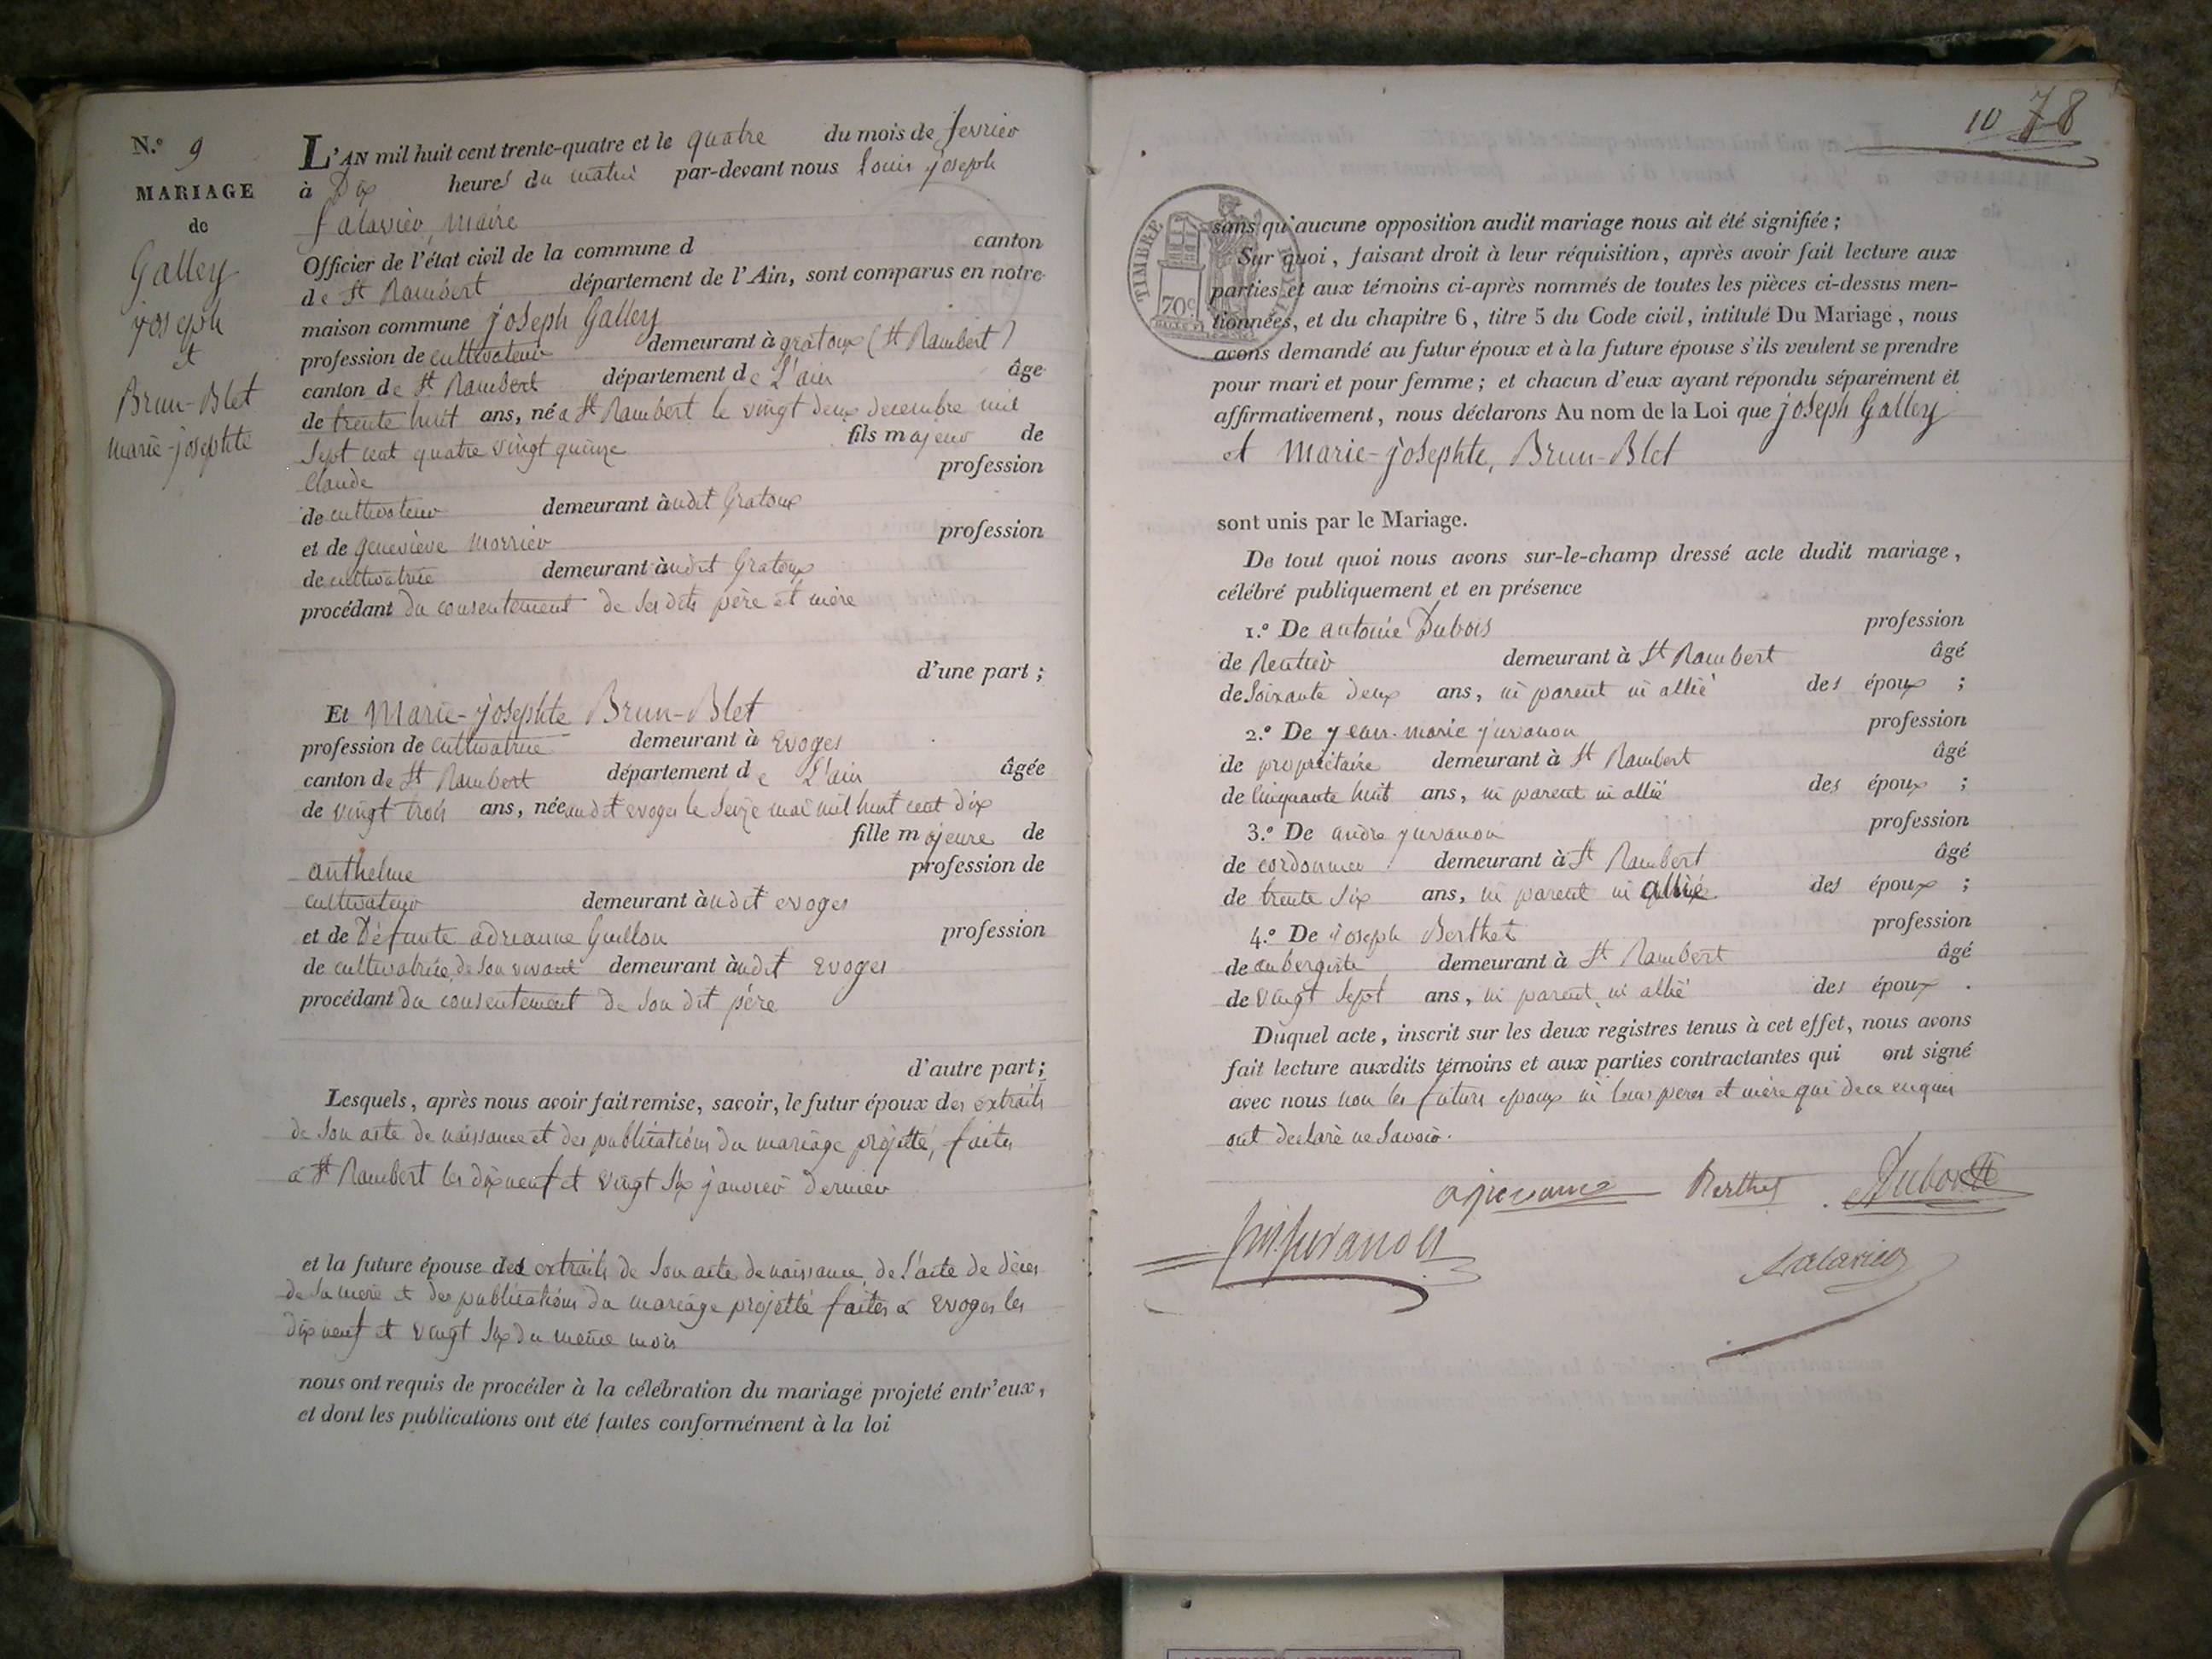 N.º 9
MARIAGE
de
Galley
joseph
et
Brun-Blet
marie-josephte
L'AN mil huit cent trente-quatre et le quatre du mois de fevrier
à Dix heures du matin par-devant nous louis joseph
falavier, maire
Officier de l'état civil de la commune d canton
de St Rambert département de l'Ain, sont comparus en notre
maison commune joseph Galley
profession de cultivateur demeurant à gratoux (St Rambert)
canton de St Rambert département de L'ain âge
de trente huit ans, né a St Rambert le vingt deux decembre mil
sept cent quatre vingt quinze fils majeur de
Claude profession
de cultivateur demeurant àudit Gratoux
et de genevieve Morrier profession
de cultivatrice demeurant àudit Gratoux
procédant du consentement de ses dits père et mère
d'une part ;
Et Marie-josephte Brun-Blet
profession de cultivatrice demeurant à Evoges
canton de St Rambert département de L'ain âgée
de vingt trois ans, née audit evoges le seize mai mil huit cent dix
fille majeure de
anthelme profession de
cultivateur demeurant àudit evoges
et de Défunte adrianne Guillon profession
de cultivatrice de son vivant demeurant àudit Evoges
procédant du consentement de son dit père
d'autre part ;
Lesquels, après nous avoir fait remise, savoir, le futur époux des extraits
de son acte de naissance et des publications du mariage projetté, faites
a St Rambert les dix neuf et vingt six janvier dernier
et la future épouse des extraits de son acte de naissance, de l'acte de décès
de sa mère et des publications du mariage projetté faites a Evoges les
dix neuf et vingt six du même mois
nous ont requis de procéder à la célébration du mariage projeté entr'eux,
et dont les publications ont été faites conformément à la loi
10 78
TIMBRE
70c
sans qu'aucune opposition audit mariage nous ait été signifiée ;
Sur quoi, faisant droit à leur réquisition, après avoir fait lecture aux
parties et aux témoins ci-après nommés de toutes les pièces ci-dessus men-
tionnées, et du chapitre 6, titre 5 du Code civil, intitulé Du Mariage, nous
avons demandé au futur époux et à la future épouse s'ils veulent se prendre
pour mari et pour femme ; et chacun d'eux ayant répondu séparément et
affirmativement, nous déclarons Au nom de la Loi que joseph Galley
et Marie-josephte, Brun-Blet
sont unis par le Mariage.
De tout quoi nous avons sur-le-champ dressé acte dudit mariage,
célébré publiquement et en présence
1.º De antoine Dubois profession
de Rentier demeurant à St Rambert âgé
de soixante deux ans, ni parent ni allié des époux ;
2.º De jean-marie juvanon profession
de propriétaire demeurant à St Rambert âgé
de Cinquante huit ans, ni parent ni allié des époux ;
3.º De andre juvanon profession
de cordonnier demeurant à St Rambert âgé
de trente six ans, ni parent ni allié des époux ;
4.º De joseph Berthet profession
de aubergiste demeurant à St Rambert âgé
de vingt sept ans, ni parent ni allié des époux .
Duquel acte, inscrit sur les deux registres tenus à cet effet, nous avons
fait lecture auxdits témoins et aux parties contractantes qui ont signé
avec nous non les futurs epoux ni leurs peres et mère qui de ce enquis
ont declaré ne savoir.
Berthet
juvanon